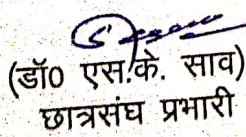 (डॉ0 एस.के. साव)
छात्रसंघ प्रभारी